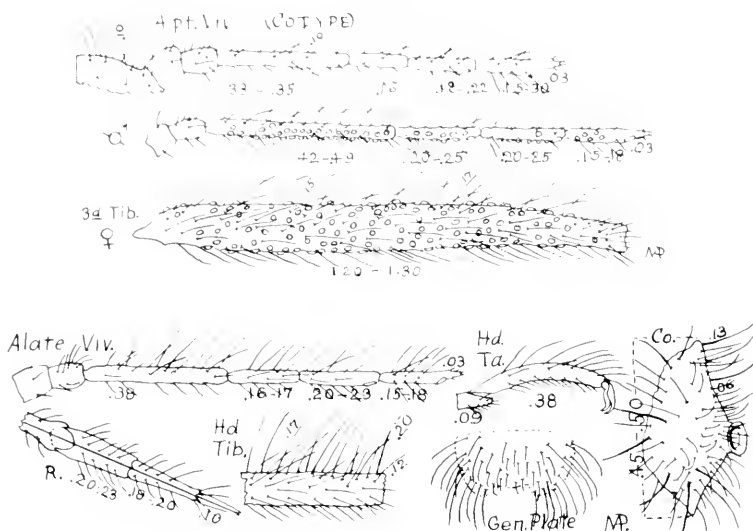 ♀ Apt. Viv. (COTYPE)
.33 - .35 .16 .18-.22 .03
♂
.42-.49 .20-.25 .20-.25 .15-.18 .03
3d Tib.
♀
.15 .17
1.20 - 1.30
MP.
Alate Viv.
.38 .16-17 .20-23 .15-18 .03
R. .20-23 .18 .20 .10
Hd
Tib.
.17 .20
.12
Hd.
Ta.
.09 .38
Gen. Plate
MP.
Co. .13
.45-.50 .06